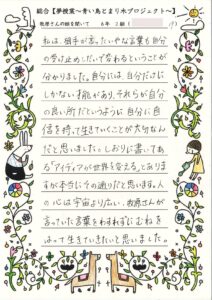 総合【夢授業～青い鳥とまり木プロジェクト～】
牧原さんの話を聞いて 6年2組(
私は、相手が言ったいやな言葉も自分
の受け止しだいで変わるということが
分かりました。自分には、自分だけに
しかない才能があり、それらが自分
の良い所だというように自分に自
信を持って生きていくことが大切なん
だと思いました。しおりに書いてあ
る「アイディアが世界を変える」とありま
すが本当にその通りだと思います。人
の心は宇宙より広い、牧原さんが
言っていた言葉をわすれずにむねを
はって生きていきたいと思いました。